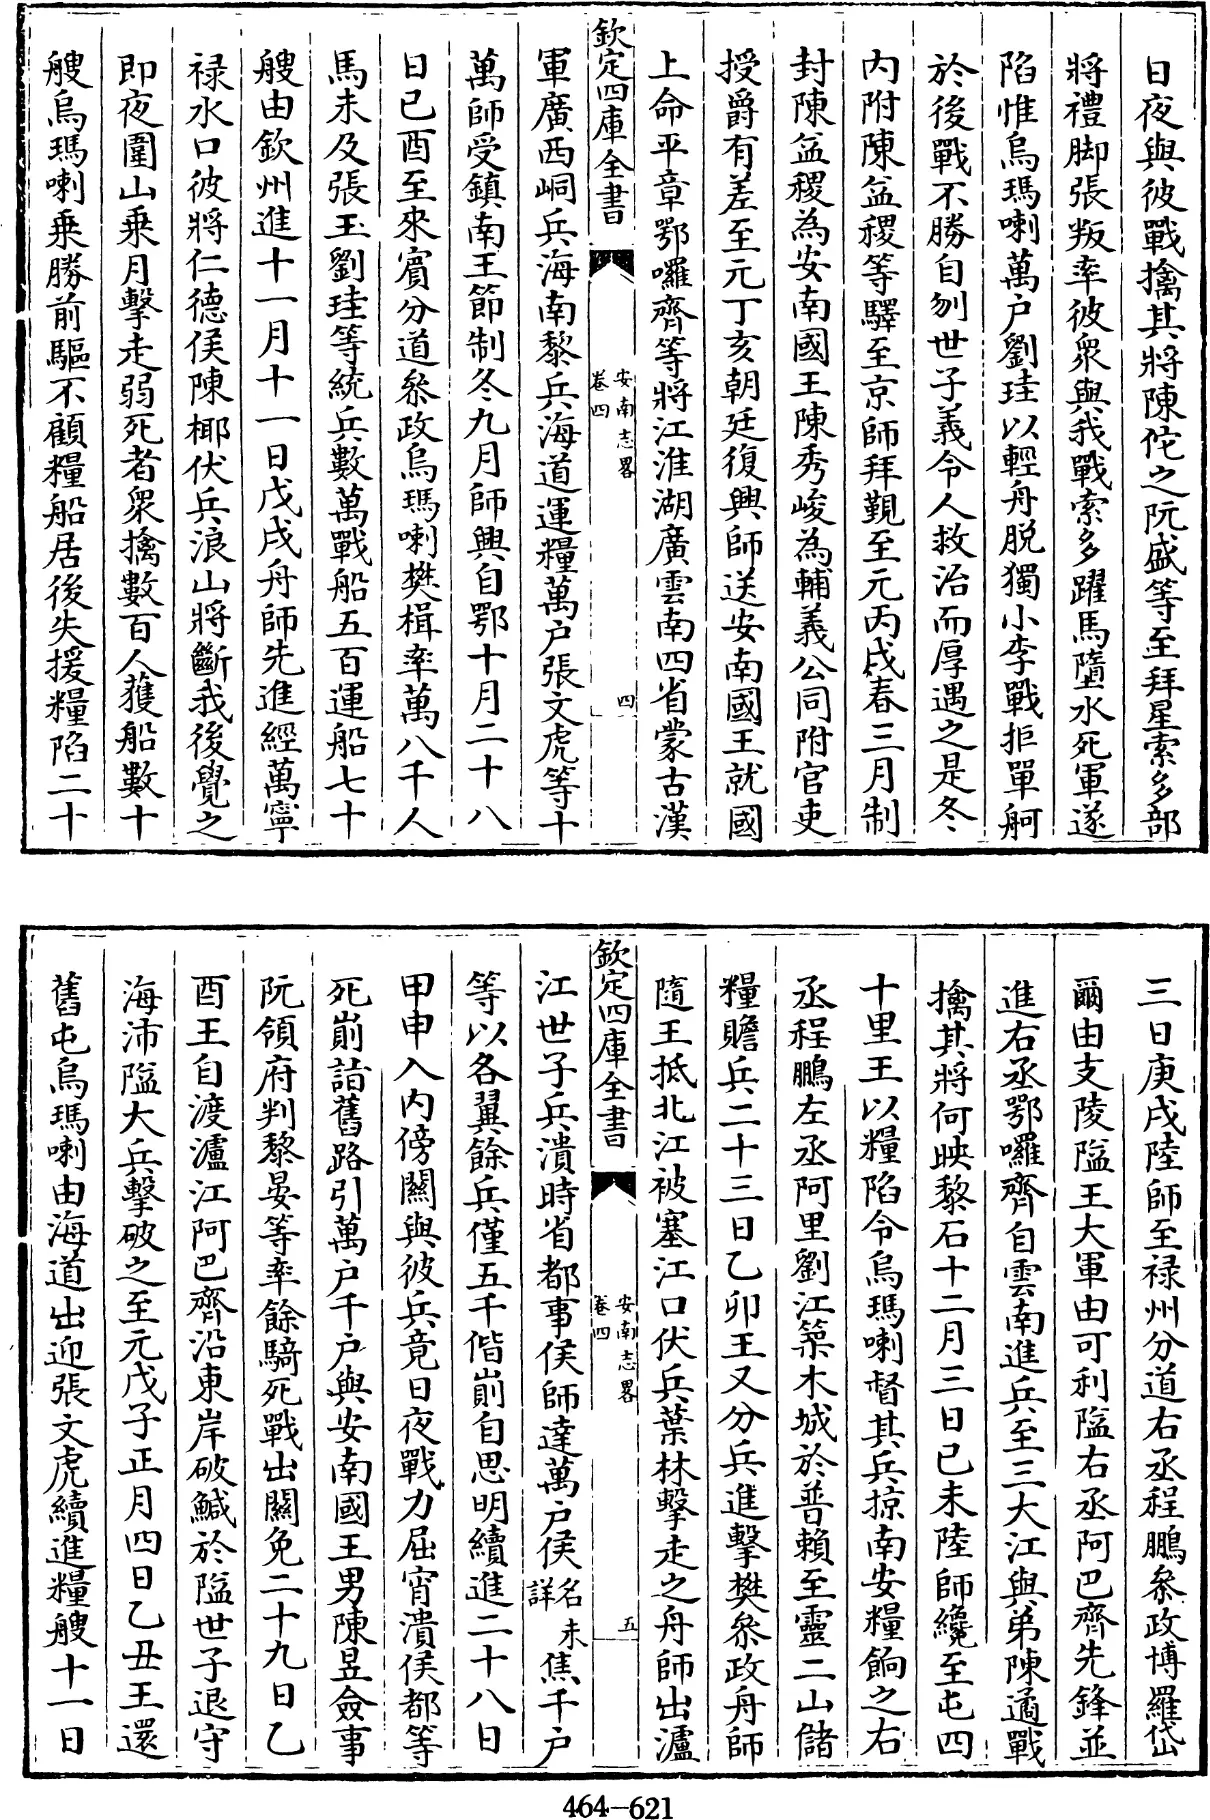 日夜與彼戰擒其將陳佗之阮盛等至拜星索多部
將禮脚張叛率彼衆與我戰索多躍馬墮水死軍遂
陷惟烏瑪喇萬户劉珪以輕舟脱獨小李戰拒單舸
於後戰不勝自刎世子義令人救治而厚遇之是冬
内附陳益稷等驛至京師拜覲至元丙戌春三月制
封陳益稷為安南國王陳秀嵈為輔義公同附官吏
授爵有差至元丁亥朝廷復興師送安南國王就國
上命平章鄂囉齊等將江淮湖廣雲南四省蒙古漢
欽定四庫全書
安南志畧
卷四
四
軍廣西峒兵海南黎兵海道運糧萬户張文虎等十
萬師受鎮南王節制冬九月師興自鄂十月二十八
日己酉至來賓分道叅政烏瑪喇樊楫率萬八千人
馬未及張玉劉珪等統兵數萬戰船五百運船七十
艘由欽州進十一月十一日戊戌舟師先進經萬寧
禄水口彼將仁德侯陳椰伏兵浪山將斷我後覺之
即夜圍山乘月擊走弱死者衆擒數百人獲船數十
艘烏瑪喇乘勝前驅不顧糧船居後失援糧陷二十
三日庚戌陸師至禄州分道右丞程鵬叅政博羅岱
爾由支陵隘王大軍由可利隘右丞阿巴齊先鋒並
進右丞鄂囉齊自雲南進兵至三大江與弟陳遹戰
擒其將何映黎石十二月三日己未陸師纔至屯四
十里王以糧陷令烏瑪喇督其兵掠南安糧餉之右
丞程鵬左丞阿里劉江築木城於普賴至靈二山儲
糧贍兵二十三日乙卯王又分兵進擊樊叅政舟師
隨王抵北江被塞江口伏兵葉林擊走之舟師出瀘
欽定四庫全書
安南志畧
卷四
五
江世子兵潰時省都事侯師達萬户侯名未詳焦千户
等以各翼餘兵僅五千偕崱自思明續進二十八日
甲申入内傍關與彼兵竟日夜戰力屈宵潰侯都等
死崱諳舊路引萬户千户與安南國王男陳昱僉事
阮領府判黎晏等率餘騎死戰出關免二十九日乙
酉王自渡瀘江阿巴齊沿東岸破鹹於隘世子退守
海沛隘大兵擊破之至元戊子正月四日乙丑王還
舊屯烏瑪喇由海道出迎張文虎續進糧艘十一日
464-621